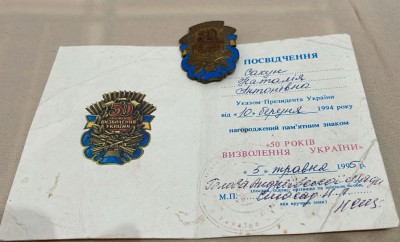 50
РОКІВ
ВИЗВОЛЕННЯ
УКРАЇНИ
50
ПОСВІДЧЕННЯ
Сакун
Наталія
Антонівна
Указом Президента України
від "10" березня 1994 року
нагороджений пам'ятним знаком
«50 РОКІВ
ВИЗВОЛЕННЯ УКРАЇНИ»
"5" травня 1995 р.
Голова Ради
М.П.